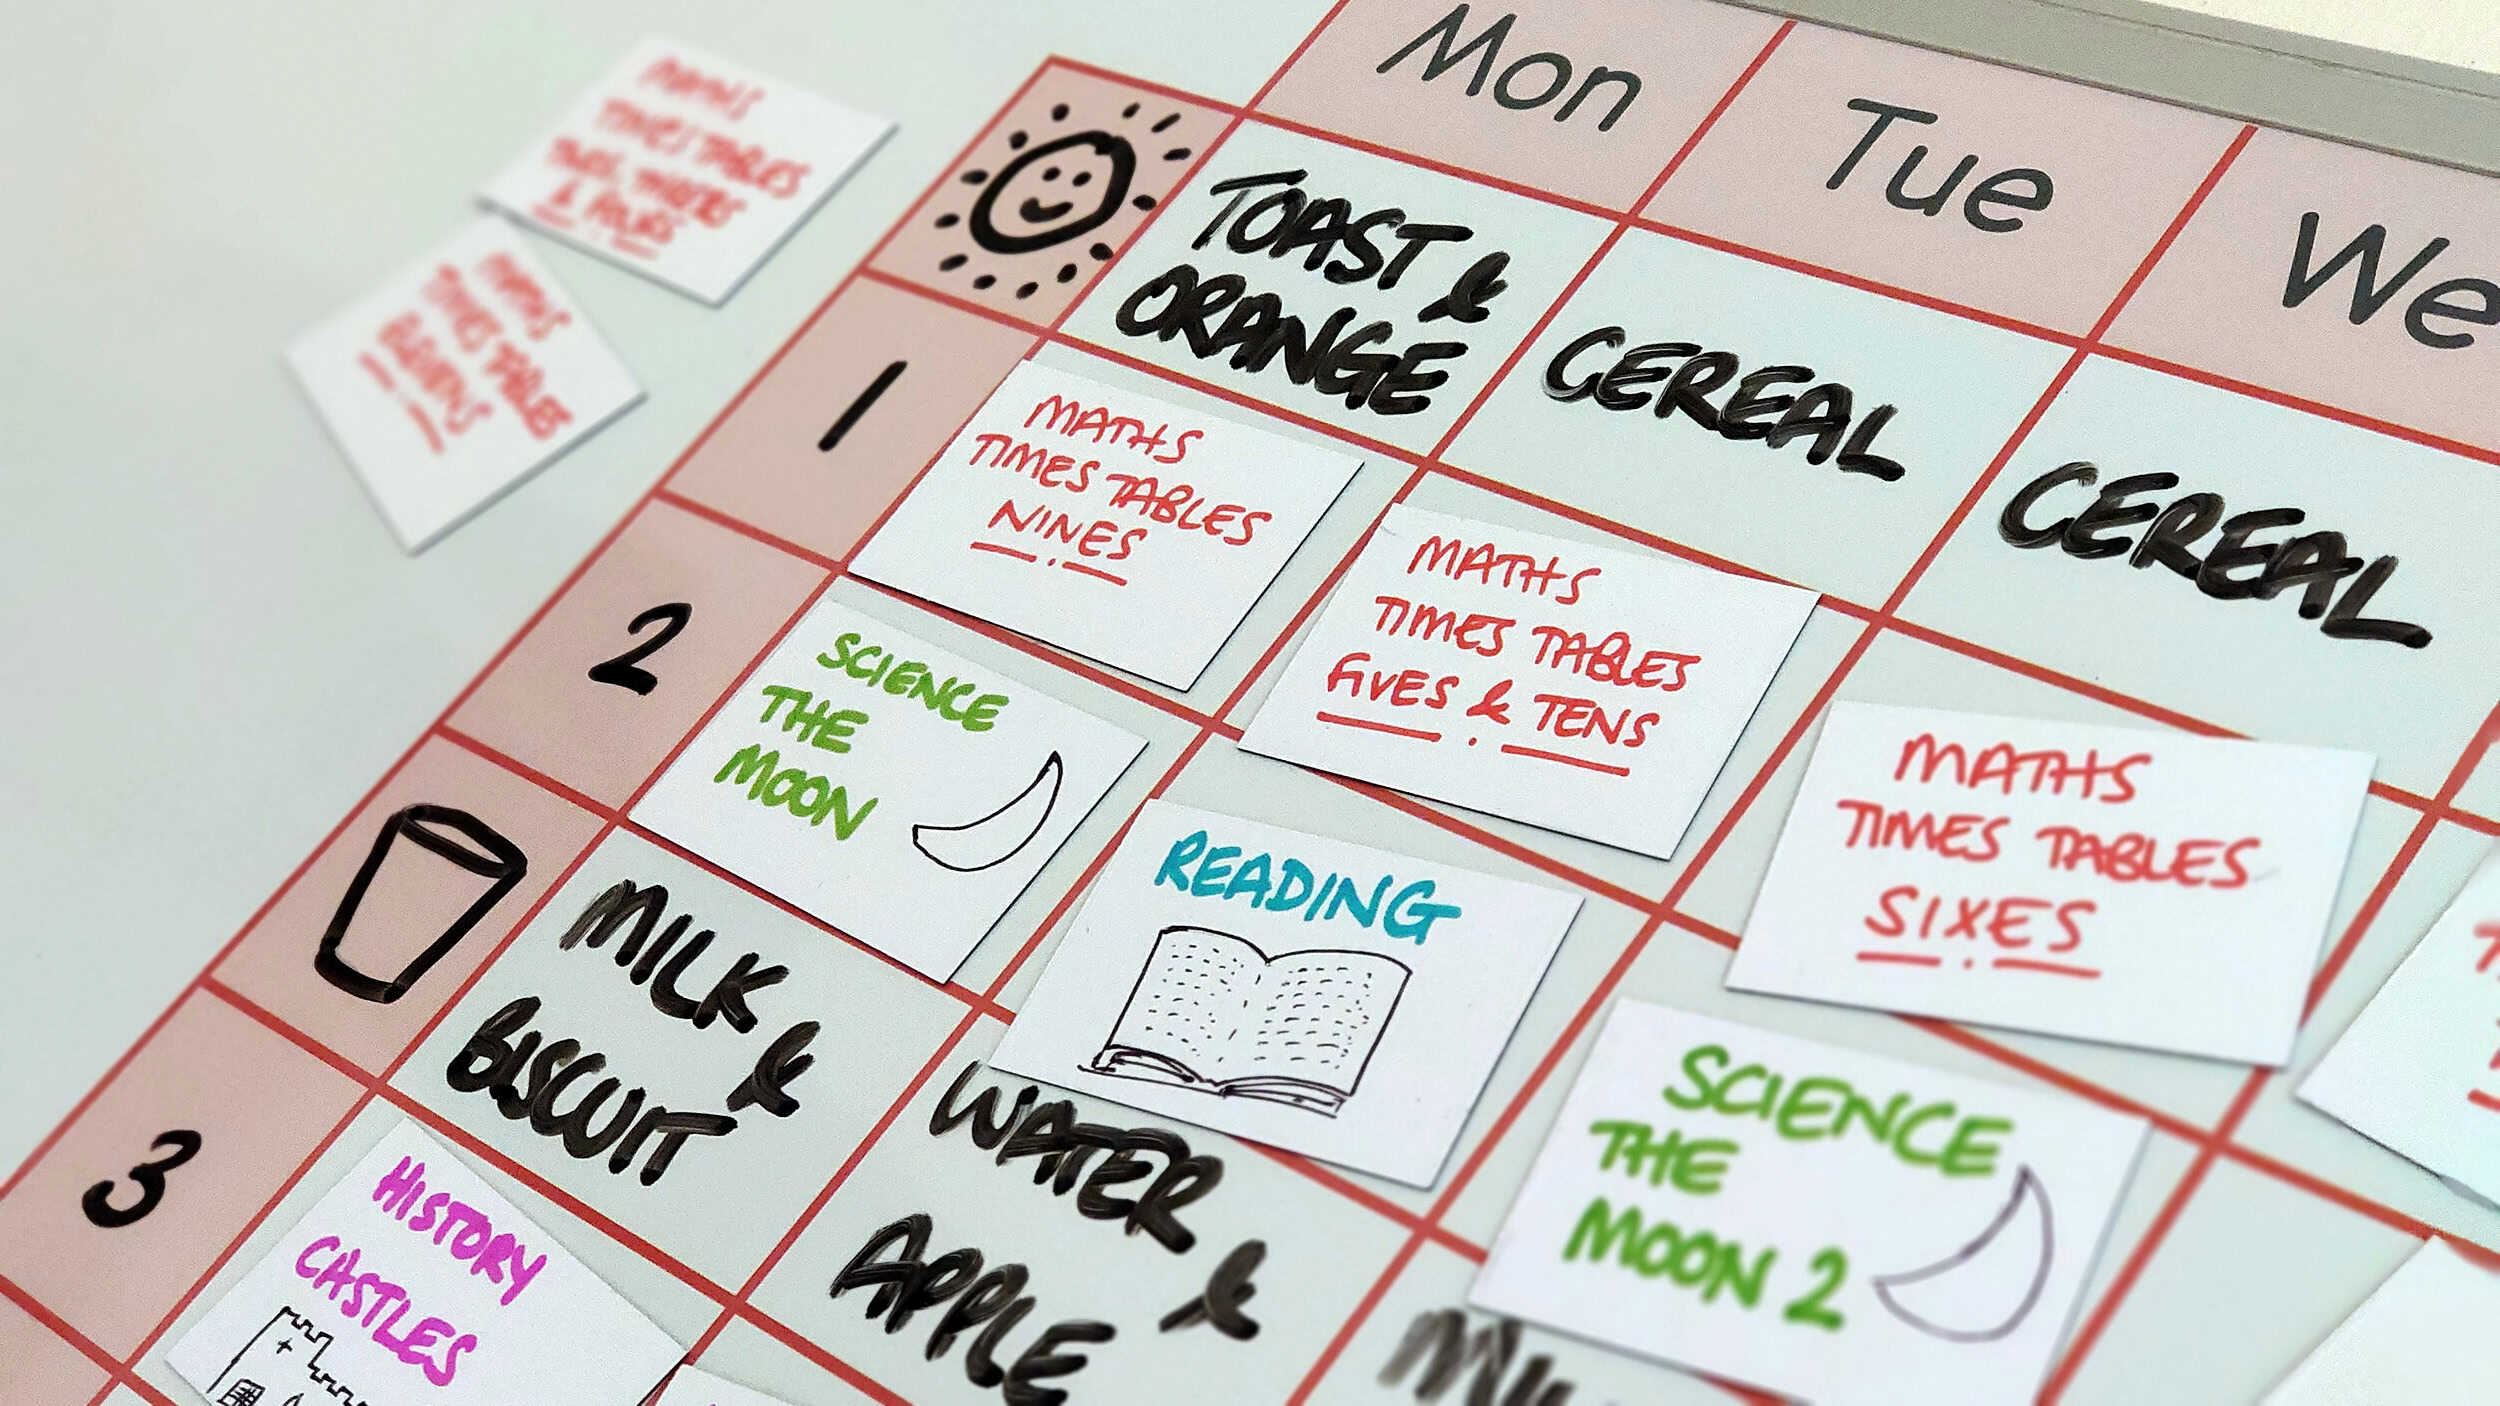 Mon
Tue
We
TOAST &
ORANGE
CEREAL
CEREAL
1
MATHS
TIMES TABLES
NINES
MATHS
TIMES TABLES
FIVES & TENS
MATHS
TIMES TABLES
SIXES
2
SCIENCE
THE
MOON
READING
SCIENCE
THE
MOON 2
MILK &
BISCUIT
WATER &
APPLE
3
HISTORY
CASTLES
MATHS
TIMES TABLES
TWOS, THREES
& FOURS